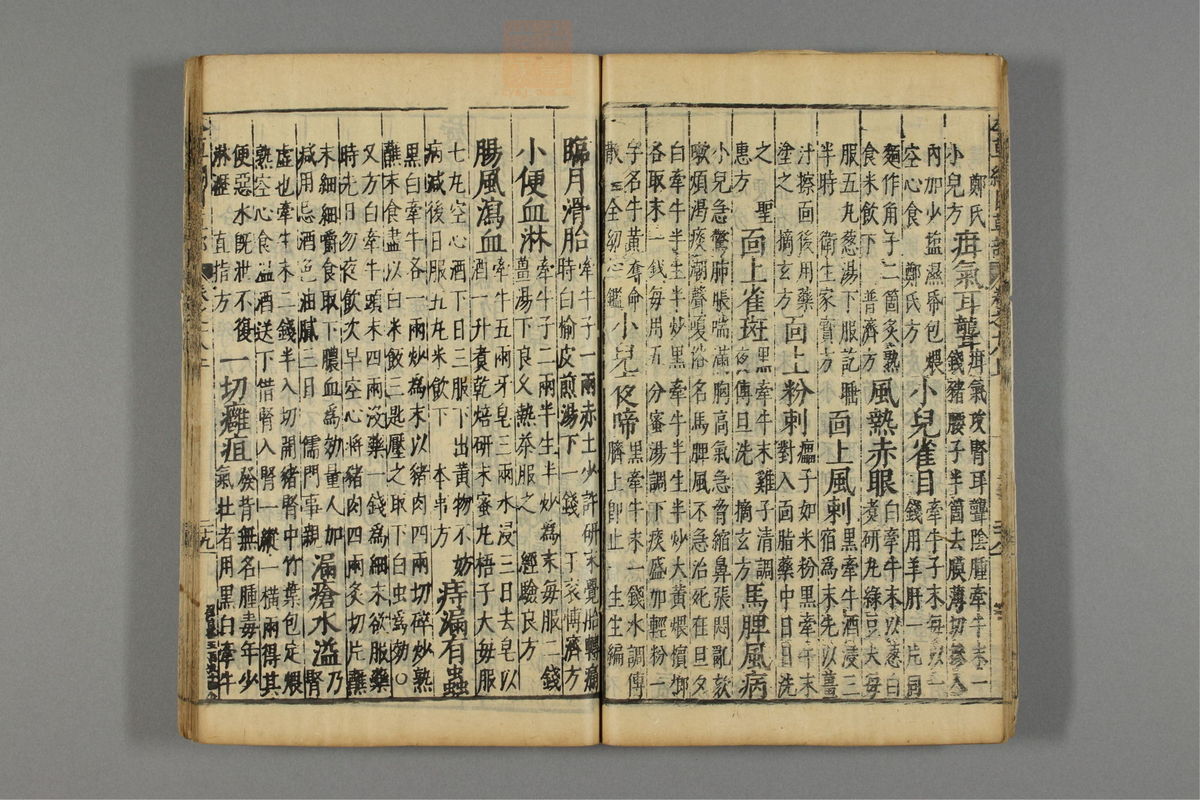 鄭氏
小兒方疳氣耳聾疳氣攻腎耳聾陰腫牽牛末一錢豬腰子半箇去膜薄切摻入
內加少鹽濕帋包煨
空心食 鄭氏方小兒雀目牽牛子末每以一錢用羊肝一片同
麵作角子二箇炙熟
食米飲下 普濟方風熱赤眼白牽牛末以葱白煑研丸綠豆大每
服五丸葱湯下服訖睡
半時 衛生家寶方面上風刺黑牽牛酒浸三宿爲末先以薑
汁擦面後用藥
塗之 摘玄方面上粉刺㾦子如米粉黑牽牛末對入面脂藥中日日洗
之 聖
惠方面上雀斑黑牽牛末雞子清調夜傅旦洗 摘玄方馬脾風病
小兒急驚肺脹喘滿胸高氣急脅縮鼻張悶亂欬
嗽煩渴痰潮聲嗄俗名馬脾風不急治死在旦夕
白牽牛半生半炒黑牽牛半生半炒大黃煨檳榔
各取末一錢每用五分蜜湯調下痰盛加輕粉一
字名牛黃奪命
散 全幼心鑑小兒夜啼黑牽牛末一錢水調傅臍上卽止 生生編
臨月滑胎牽牛子一兩赤土少許研末覺胎轉痛時白榆皮煎湯下一錢 王袞博濟方
小便血淋牽牛子二兩半生半炒爲末每服二錢薑湯下良久熱茶服之 經驗良方
腸風瀉血牽牛五兩牙皂三兩水浸三日去皂以酒一升煑乾焙研末蜜丸梧子大每服
七丸空心酒下日三服下出黃物不妨
病減後日服五丸米飲下 本事方痔漏有蟲
黑白牽牛各一兩炒爲末以豬肉四兩切碎炒熟
蘸末食盡以白米飯三匙壓之取下白虫爲効〇
又方白牽牛頭末四兩沒藥一錢爲細末欲服藥
時先日勿夜飲次早空心將豬肉四兩炙切片蘸
末細細嚼食取下膿血爲効量人加
減用忌酒色油膩三日 儒門事親漏瘡水溢乃腎
虛也牽牛末二錢半入切開豬腎中竹葉包定煨
熟空心食溫酒送下借腎入腎一縱一橫兩得其
便惡水旣泄不復
淋瀝 直指方一切癰疽發背無名腫毒年少氣壯者用黑白牽牛